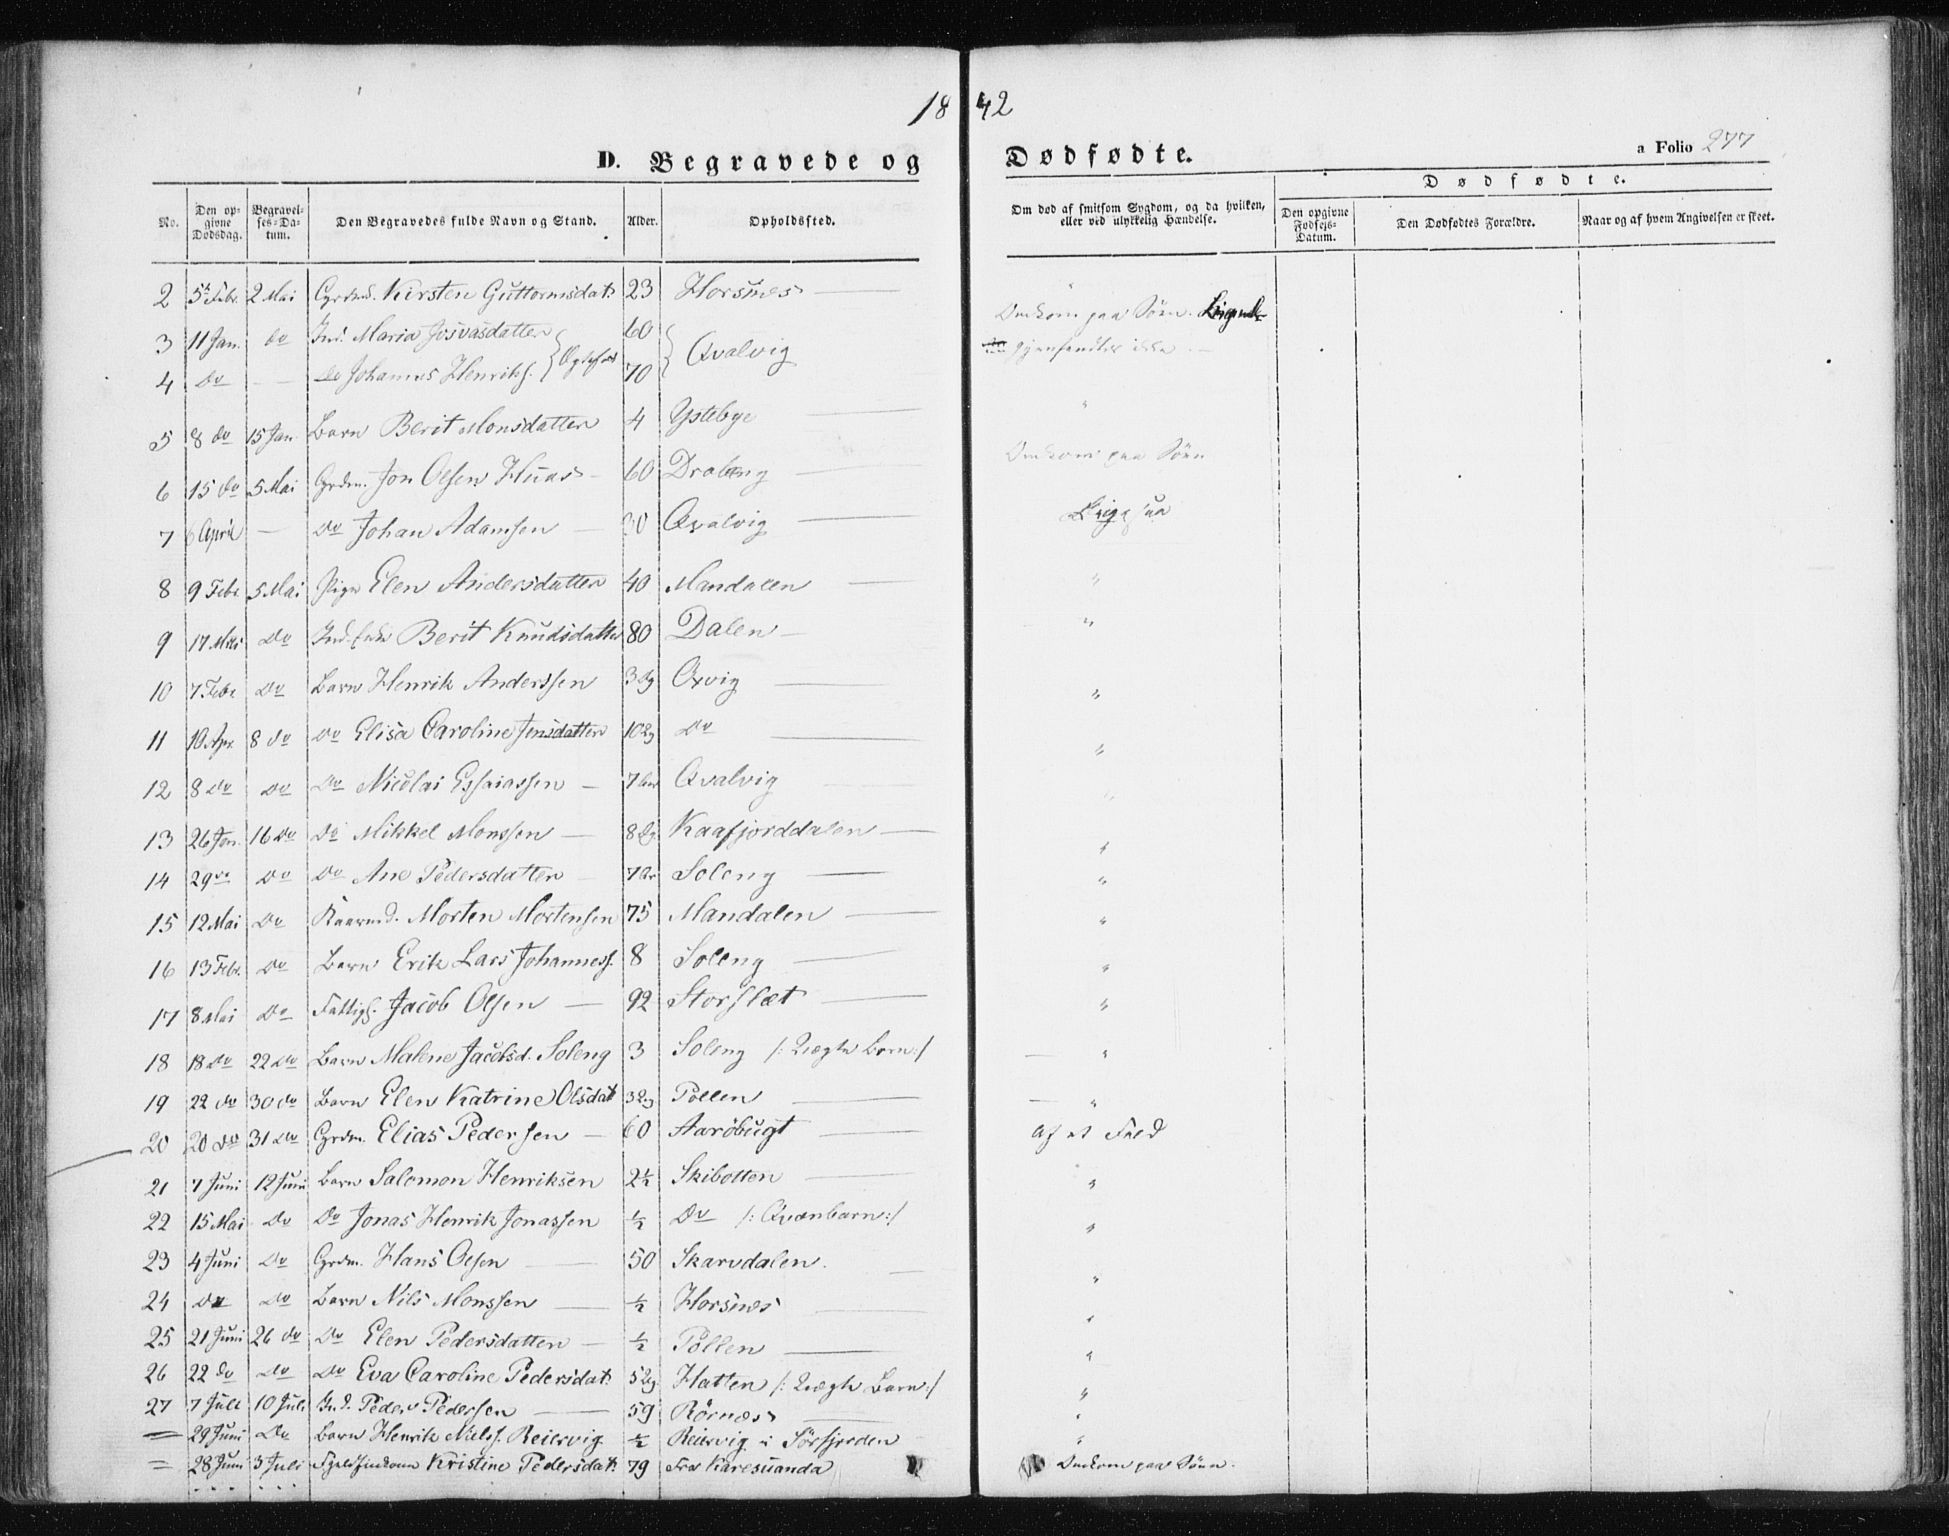 18 42
D. Begravede og Dødfødte.
a Folio 277
No. | Den opgivne Dødsdag. | Begravelses-Datum. | Den Begravedes fulde Navn og Stand. | Alder. | Opholdssted. | Om død af smitsom Sygdom, og da hvilken, eller ved ulykkelig Hændelse. | Dødfødte. | Den opgivne Fødsels-Datum. | Den Dødfødtes Forældre. | Naar og af hvem Angivelsen er skeet.
2 5te Febr. 2 Mai Kirsten Guttormsdat: 23 Horsnes "
3 11 Jan. do Ind. Maria Josvasdatter 60 Qvalvig Omkom paa Søen.
4 do — do Johannes Henriks. 70 gjenfandtes ikke.
5 8 do 15 Jan. Barn Berit Monsdatter 4 Ystebye "
6 15 do 5 Mai Grdm. Jon Olsen Huas 60 Draleng Omkom paa Søen
7 6 April — do Johan Adamsen 30 Qvalvig Ligesaa
8 9 Febr 5 Mai Pige Elen Andersdatter 40 Mandalen "
9 17 do Berit Knudsdatter 80 Dalen "
10 7 Febr do Barn Henrik Anderssen 3 Dg Oxvig "
11 10 Apr. 8 do do Elisa Caroline Jensdatter 10 Dg do "
12 8 do do do Nicolai Essaiassen 7 Qvalvig "
13 26 Jan. 16 do do Mikkel Monssen 8 Dg. Kaafjorddalen "
14 29 do do do Ane Pedersdatter 7 Soleng "
15 12 Mai do Morten Mortensen 75 Mandalen "
16 13 Febr. do Barn Erik Lars Johanness. 8 Soleng "
17 8 Mai do Fattigl. Jacob Olsen 92 Storslet "
18 18 do 22 do Barn Malene Jacobsd. Soleng 3 Soleng /: Uægte Barn :/ "
19 22 do 30 do Barn Elen Katrine Olsdat 3 Dg Pollen "
20 20 do 31 do Grdm. Elias Pedersen 60 Aarøbugt Af et
21 7 Juni 12 Juni Barn Salomon Henriksen 2½ Skibotten "
22 15 Mai do do Jonas Henrik Jonassen ½ do /: Qvænbarn :/ "
23 4 Juni do Grdm. Hans Olsen 50 Skarvdalen. "
24 do do Barn Nils Monssen ½ Horsnes "
25 21 Juni 26 do do Elen Pedersdatter ½ Pollen "
26 22 do do do Eva Caroline Pedersdat: 5 Dg. Hatten /: Uægte Barn :/ "
27 7 Juli 10 Juli Ind. Peder Pedersen 59 Rørnæs "
= 29 Juni do Barn Henrik Niels. Reiervig ½ Reiervig i Sørfjorden "
= 28 Juni 3 Juli Kristine Pedersdat: 79 Fra Karesuanda Omkom paa Søen.